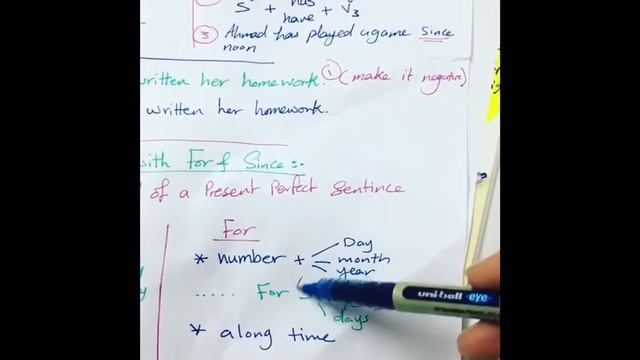 S + has
have + V3
③ Ahmad has played agame since
noon
written her homework. ① (make it negative)
written her homework.
with For & Since:-
of a Present Perfect Sentince
For
* number + Day
month
year
..... For
days
* along time
uni-ball eye